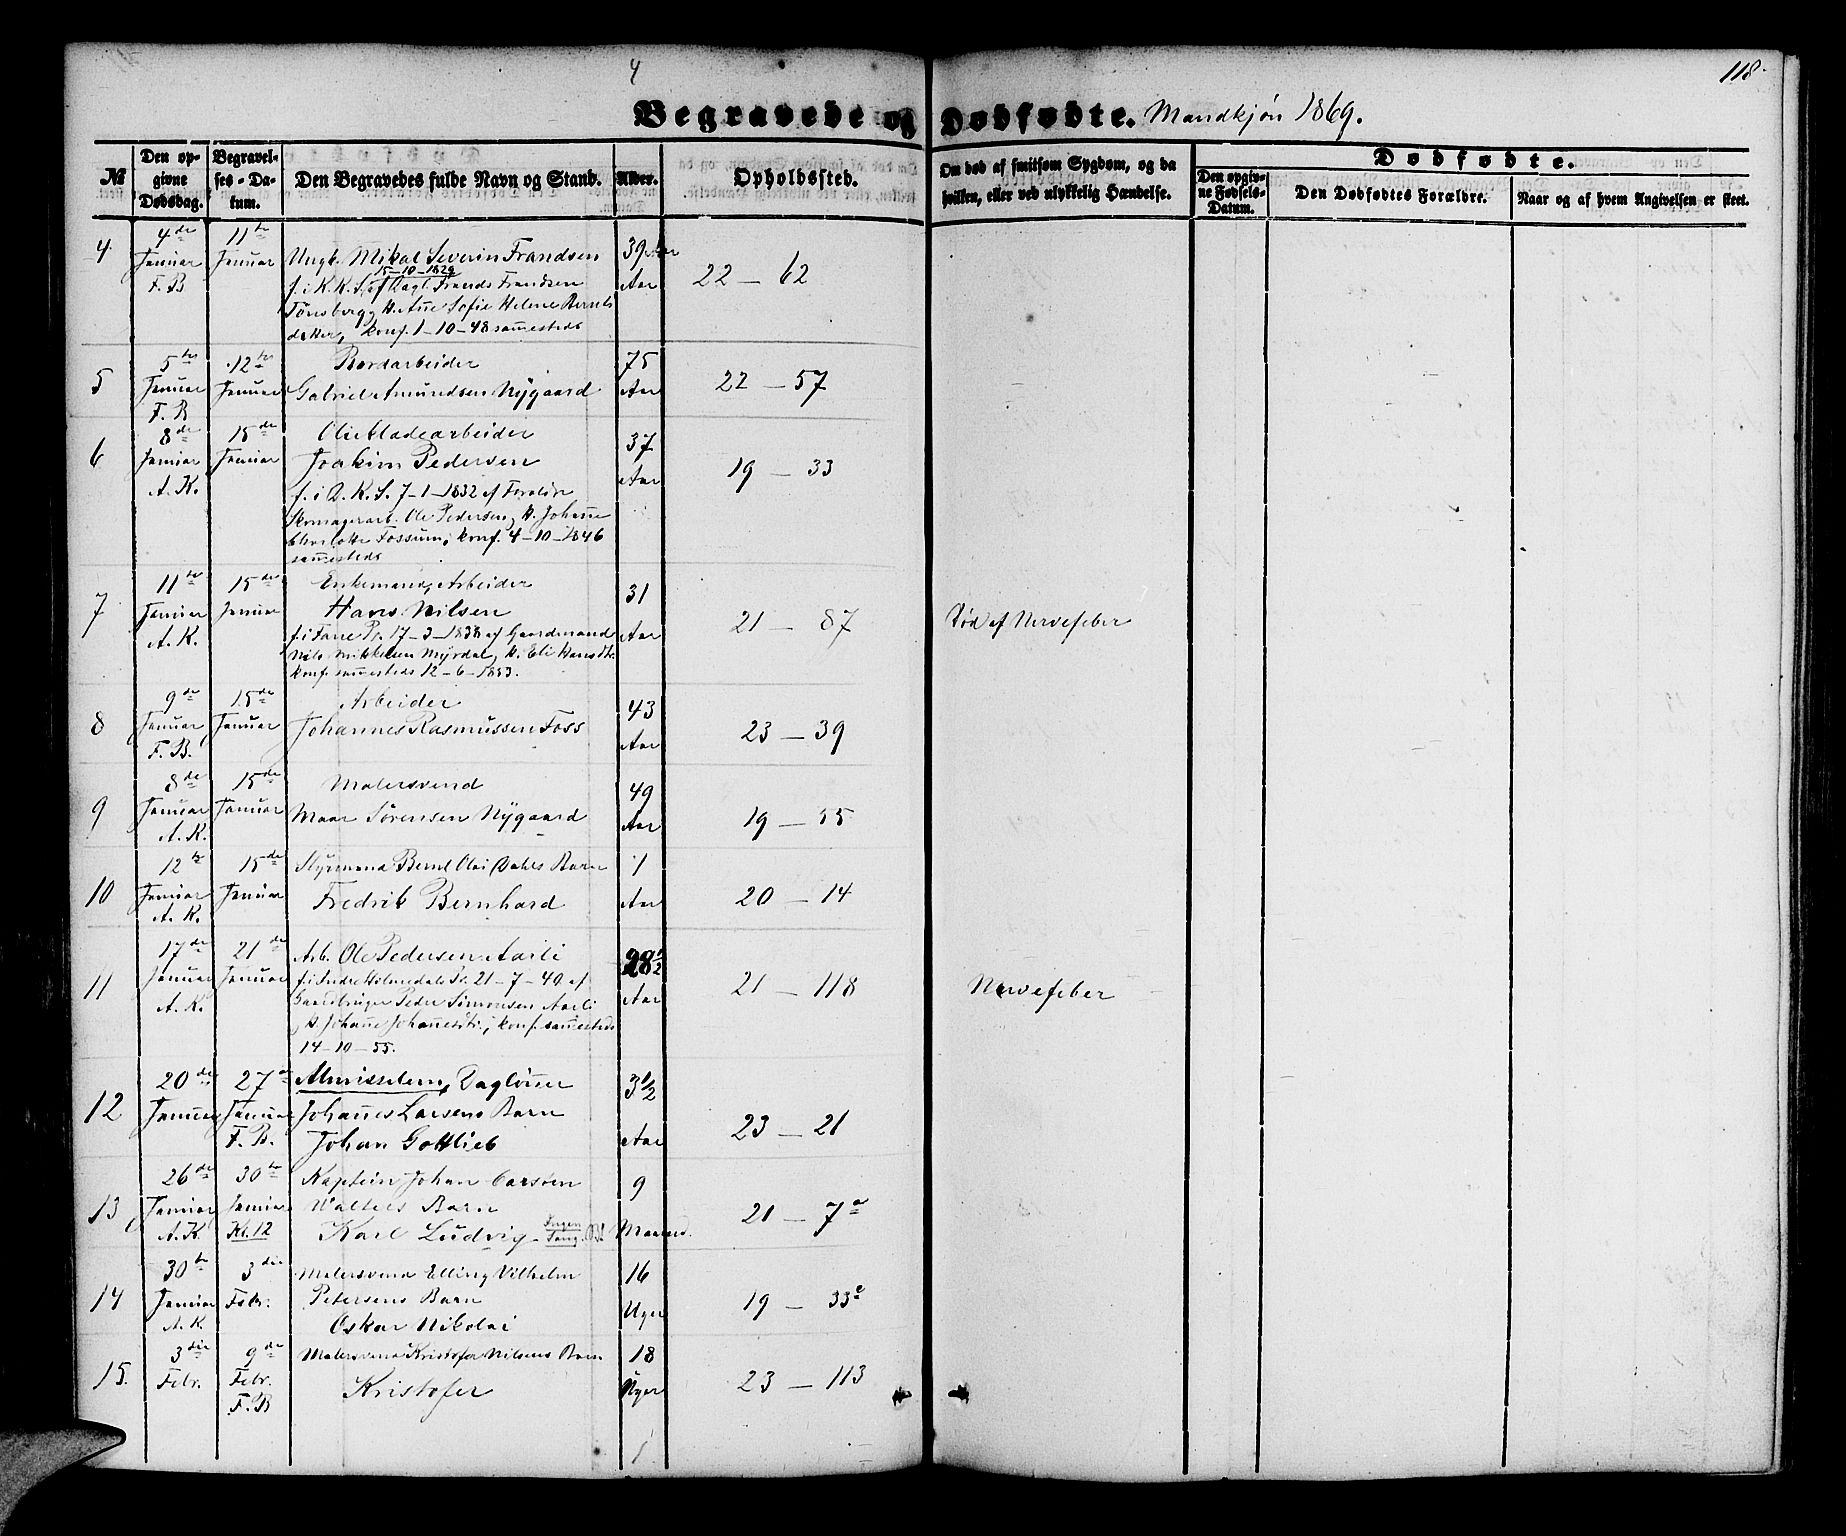 4
118.
Begravede og Dødfødte. Mandkjøn 1869.
№
Den opgivne Dødsdag.
Begravelses-Datum.
Den Begravedes fulde Navn og Stand.
Alder.
Opholdssted.
Om død af smitsom Sygdom, og da hvilken, eller ved ulykkelig Hændelse.
Dødfødte.
Den opgivne Fødsels-Datum.
Den Dødfødtes Forældre.
Naar og af hvem Angivelsen er skeet.
4
4de Januar F. B
11te Januar
Ungk. Mikal Severin Frandsen
15-10-1829
f. i K. K. S. af Dagl. Frands Frandsen
Tønsberg, H. Ane Sofie Helene Bernts
datter, konf. 1-10-48 samesteds
39 Aar
Aar
22 – 62
5
5te Januar F. B
12te Januar
Bordarbeider
Gabriel Amundsen Nygaard
75 Aar
22 – 57
6
8de Januar A. K.
15de Januar
Oliekladearbeider
Joakim Pedersen
f. i D. K. S. 7-1-1832 af Foreldre
Skomagerarb. Ole Pedersen, H. Johanne
Charlotte Fossum; konf. 4-10-1846
samesteds
37 Aar
19 – 33
7
11te Januar A. K.
15de Januar
Enkemand, Arbeider
Hans Nilsen
f. i Fane Pr. 17-3-1838 af Gaardmand
Nils Mikkelsen Myrdal, H. Eli Hansdtr.
konf. samesteds 12-6-1853.
31 Aar
21 – 87
Død af Nervefeber
8
9de Januar F. B.
15de Januar
Arbeider
Johannes Rasmussen Foss
43 Aar
23 – 39
9
8de Januar A. K.
15de Januar
Malersvend
Maar Sørensen Nygaard
49 Aar
19 – 55
10
12te Januar A. K.
15de Januar
Styrmand Bernt Olai Dahls Barn
Fredrik Bernhard
1 Aar
20 – 14
11
17de Januar A. K.
21de Januar
Arb. Ole Pedersen Aarli
f. i Indre Holmedals Pr. 21-7-40 af
Gaardbruger Peder Simonsen Aarli
, H. Johanne Johannesdtr.; konf. samesteds
14-10-55.
28½ Aar
21 – 118
Nervefeber
12
20de Januar
27de Januar F. B.
Almisselem, Dagløner
Johannes Larsens Barn
Johan Gottlieb
3½ Aar
23 – 21
13
26de Januar A. K
30te Januar Kl. 12
Kaptein Johan Carsten
Walters Barn
Karl Ludvig. Ingen Sang
9 Maaned.
21 – 7a
14
30te Januar A. K
3die Febr.
Malersvend Elling Vilhelm
Petersens Barn
Oskar Nikolai
16 Uger
19 – 33c
15.
3die Febr.
9de Febr. F. B
Malersvend Kristofer Nilsens Barn
Kristofer
18 Uger
23 – 113